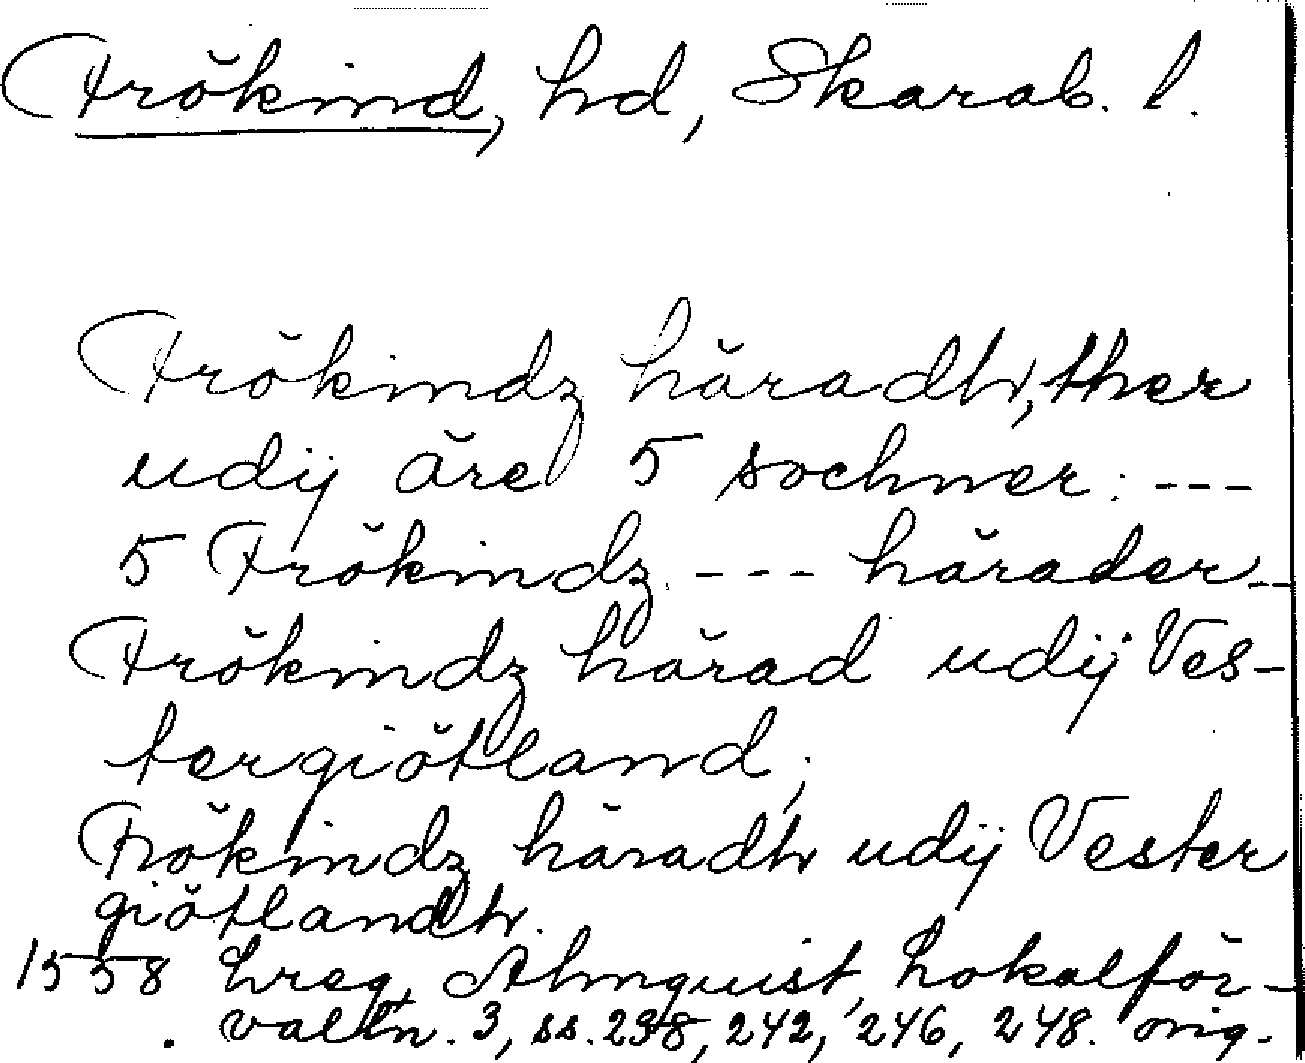 Frökind, hd, Skarab. l.
Frökindz häradh, ther
udij äre 5 sochner: ---
5 Frökindz --- härader --
Frökindz härad udij Ves-
tergiötland;
Frökindz häradh udij Vester
giötlandh.
1558 hreg, Almquist, Lokalför-
valtn. 3, ss. 238, 242, 246, 248. orig.